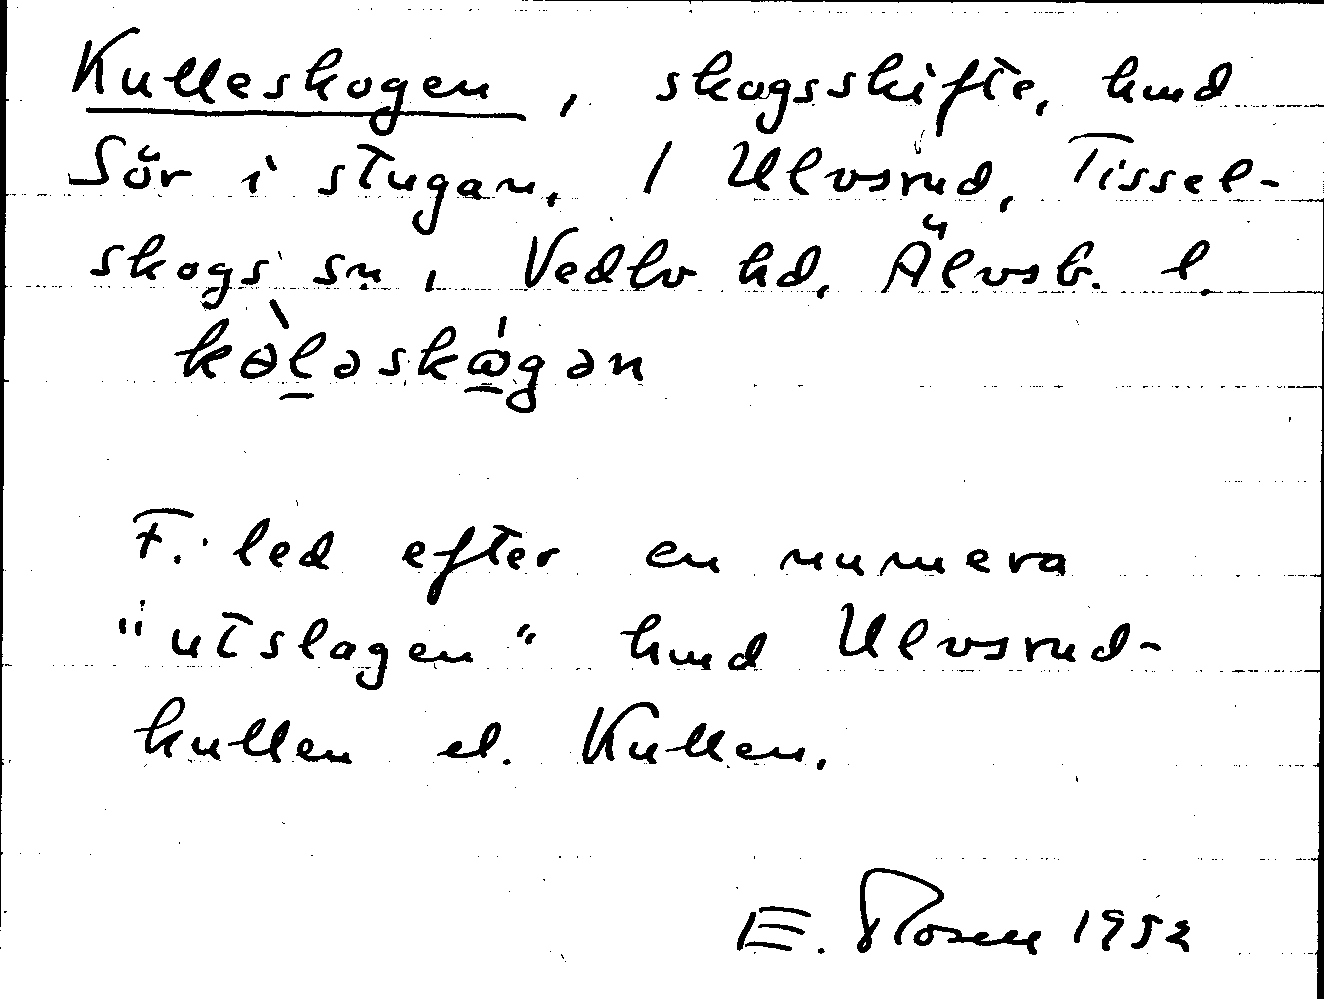 Kulleskogen, skogsskifte, hmd
Sör i stugan, 1 Ulvsrud, Tissel-
skogs sn, Vedbo hd, Älvsb. l.
kɵ̀lǝskɷ́gǝn
F. led efter en numera
"utslagen" hmd Ulvsrud-
kullen el. Kullen.
E. Rosell 1952